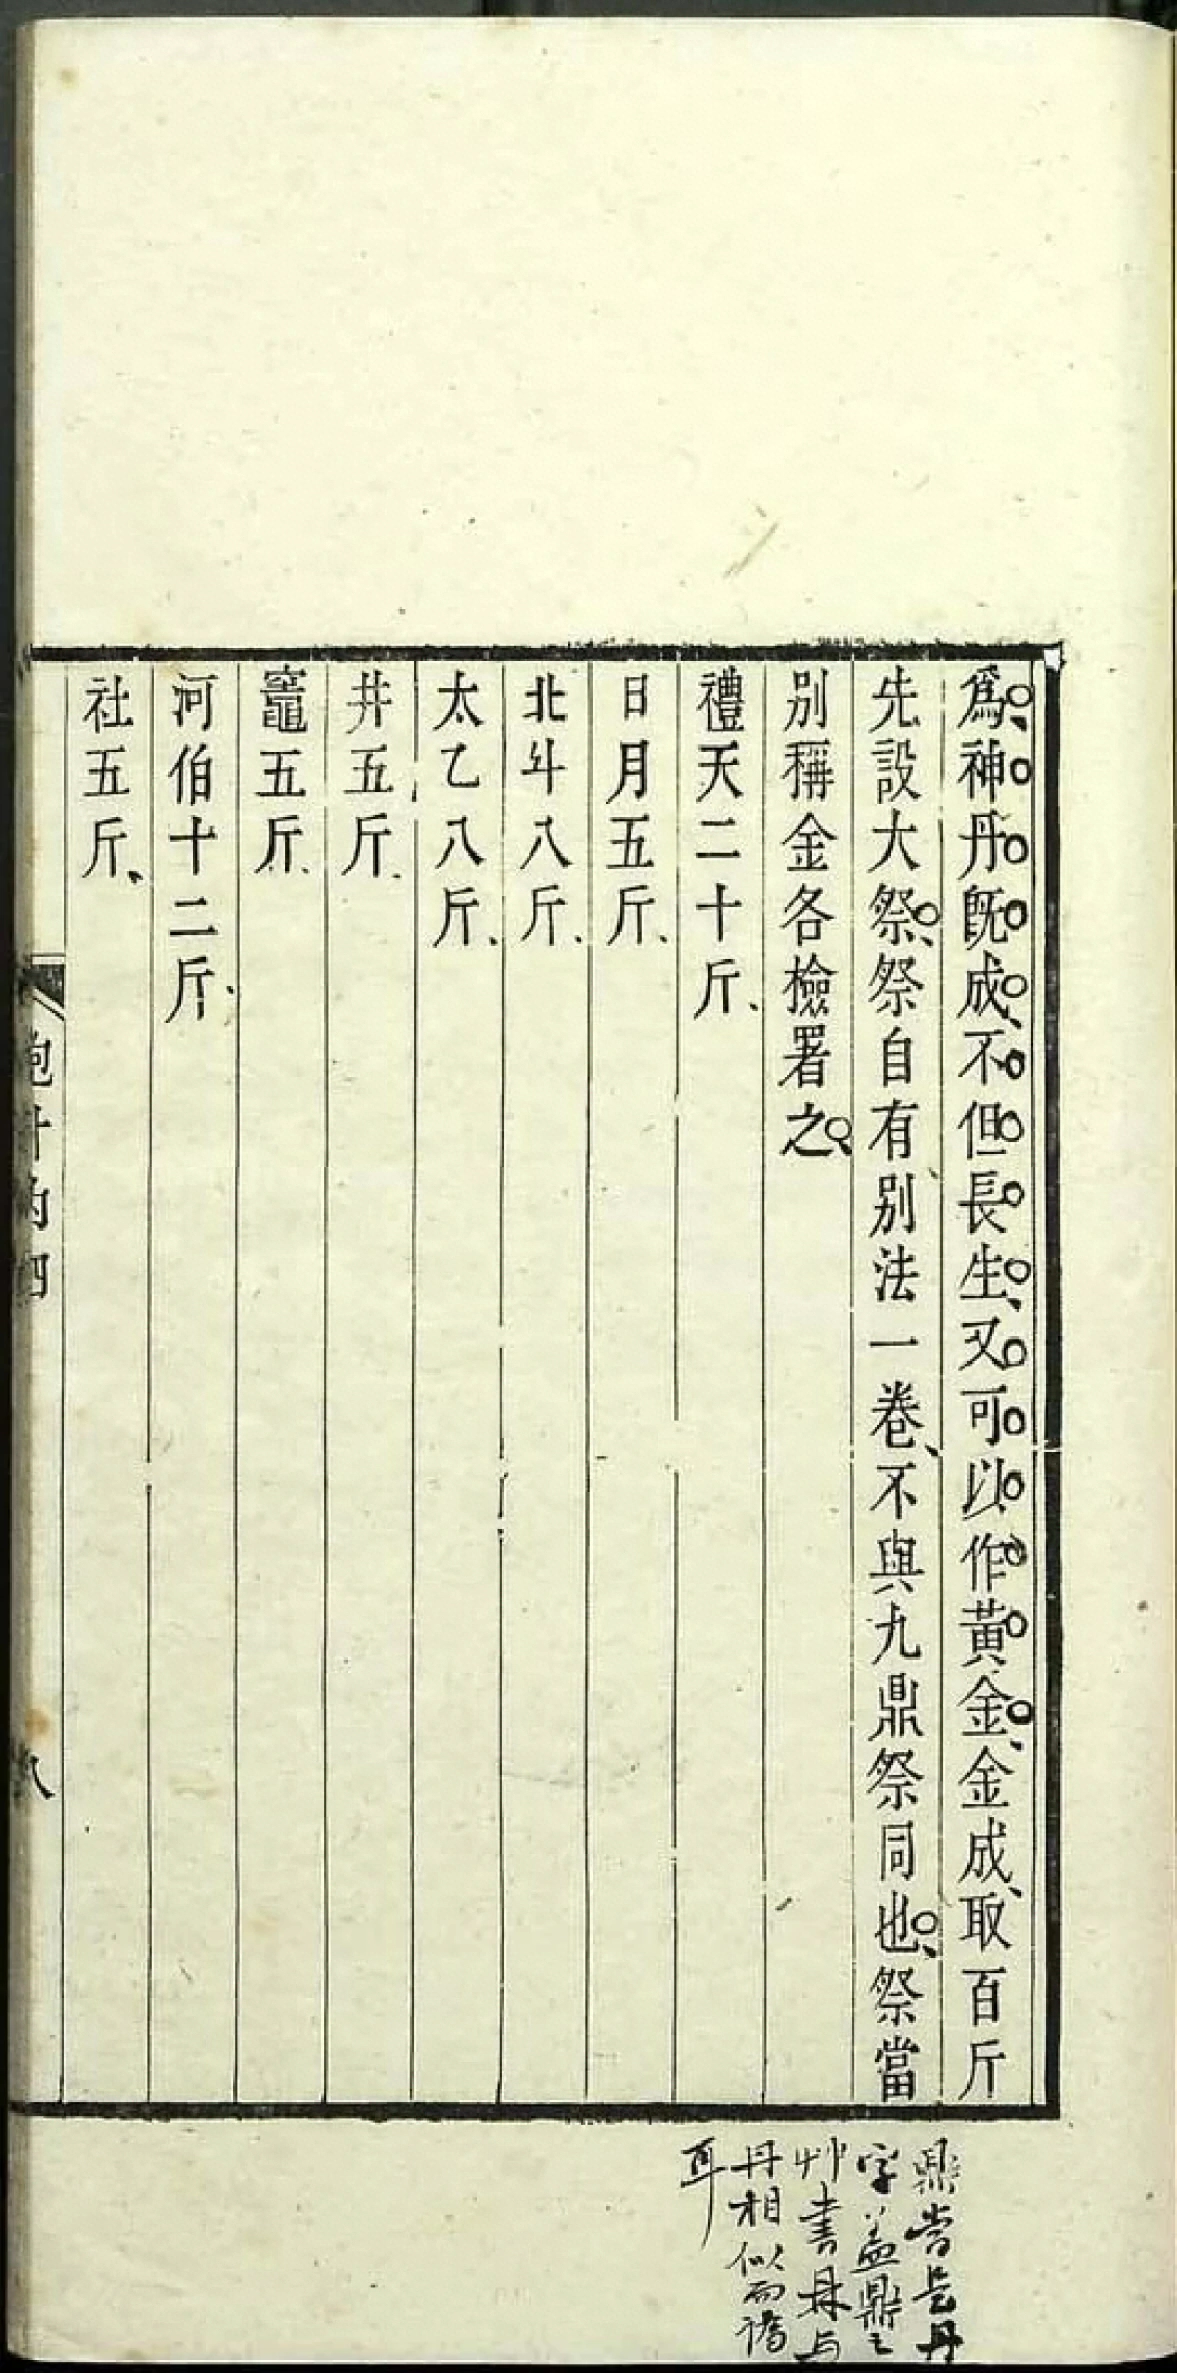 爲神丹旣成不但長生又可以作黃金金成取百斤
先設大祭祭自有別法一卷不與九鼎祭同也祭當
別稱金各檢署之
禮天二十斤
日月五斤
北斗八斤
太乙八斤
井五斤
竈五斤
河伯十二斤
社五斤
抱朴內四
八
鼎當是丹
字盖鼎之
艸書㫷与
丹相似而譌
耳